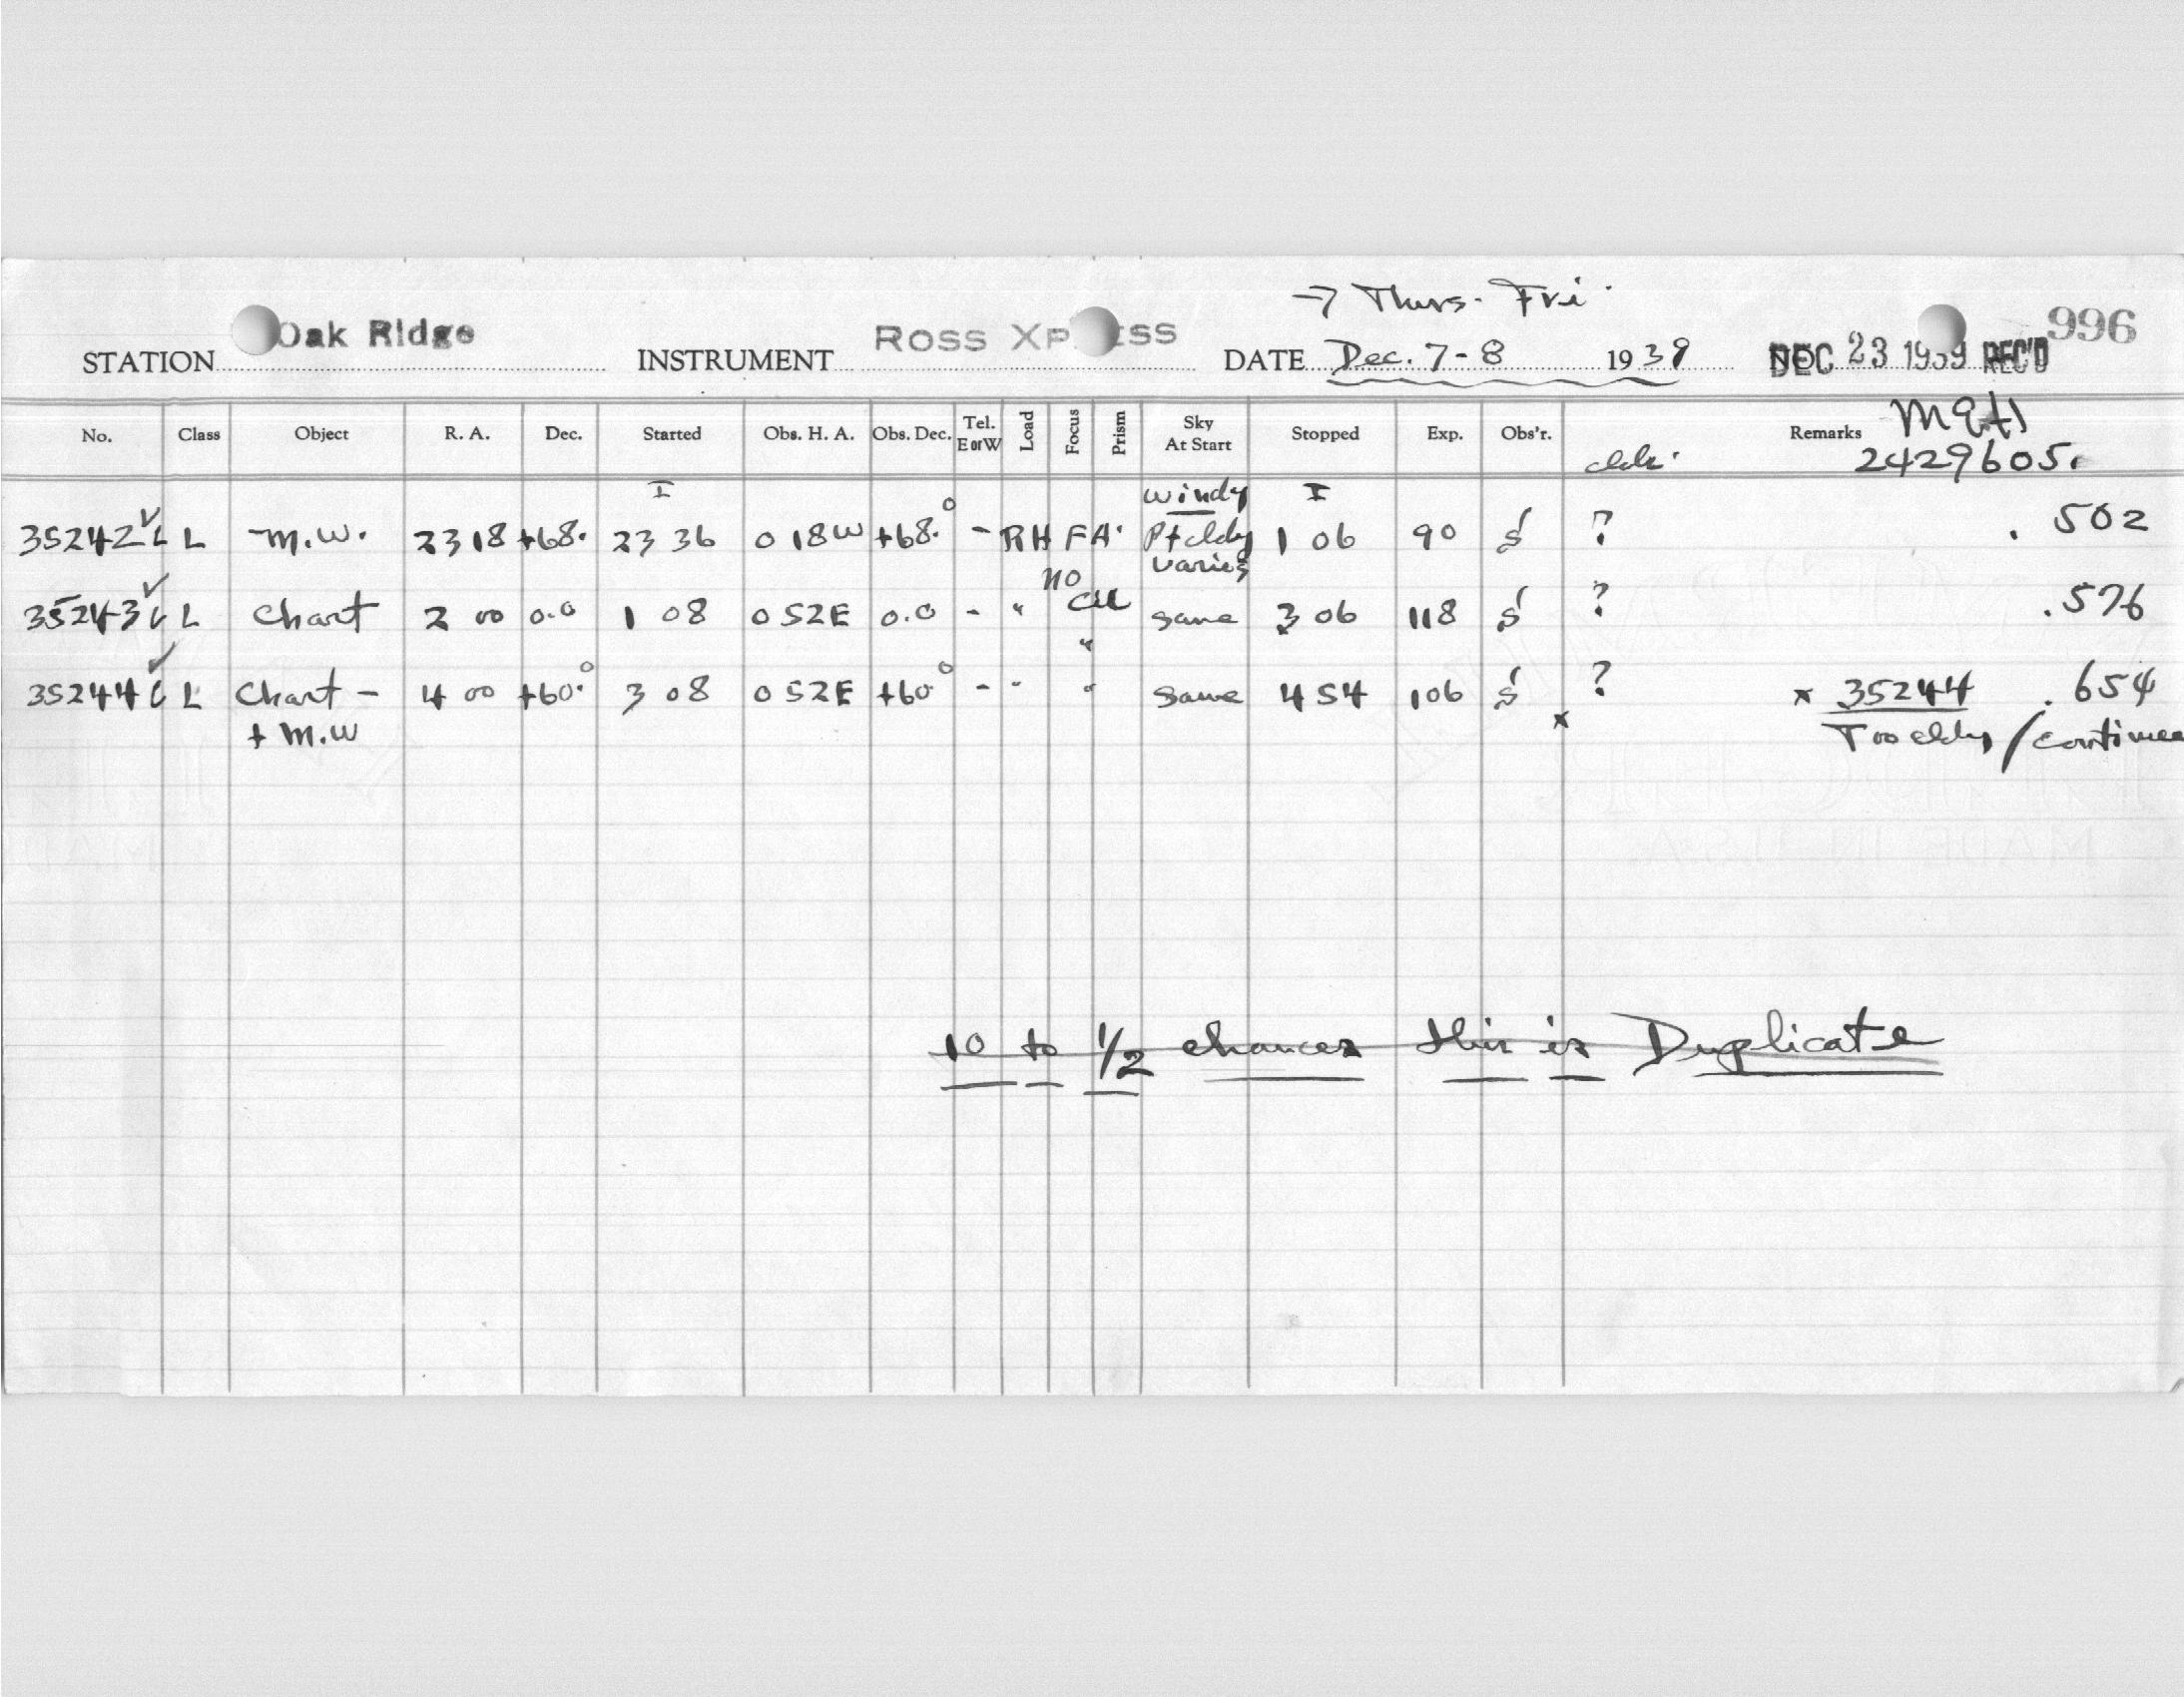 → Thurs. Fri.
STATION Oak Ridge INSTRUMENT ROSS XP ESS DATE Dec. 7-8 1939 NO. DEC 23 1939 REC'D 996
No. Class Object R. A. Dec. Started Obs. H. A. Obs. Dec. Tel. E or W Load Focus Prism Sky At Start Stopped Exp. Obs'r. Remarks
2429605.
I windy I
35242 L L M.W. 23 18 +68. 23 36 0 18W +68.° - RH FA. Pt cldy 1 06 90 S ? . 502
varies
no
35243 L L Chart 2 00 0.0 1 08 0 52E 0.0 - " Cell same 3 06 118 S ? .576
"
35244 L L Chart - 4 00 +60.° 3 08 0 52E +60° - " " same 4 54 106 S ? x 35244 .654
+ M.W x Too cldy / continued
10 to 1/2 chances this is Duplicate